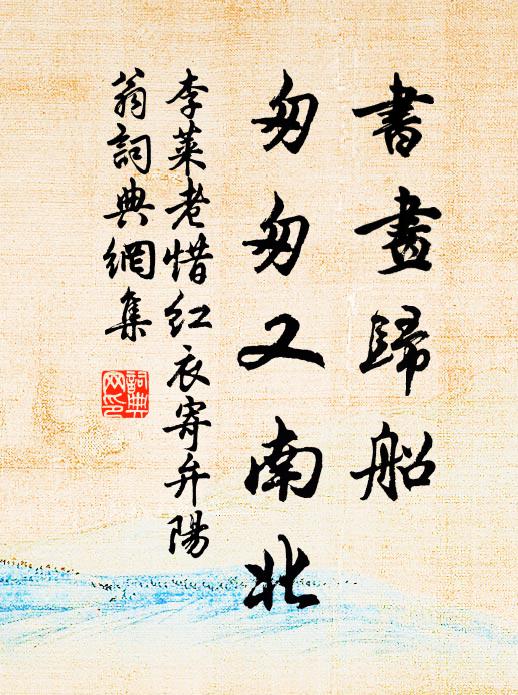 書畫歸船
匆匆又南北
李萊老惜红衣寄弁陽
翁詞典網集
詞典网印